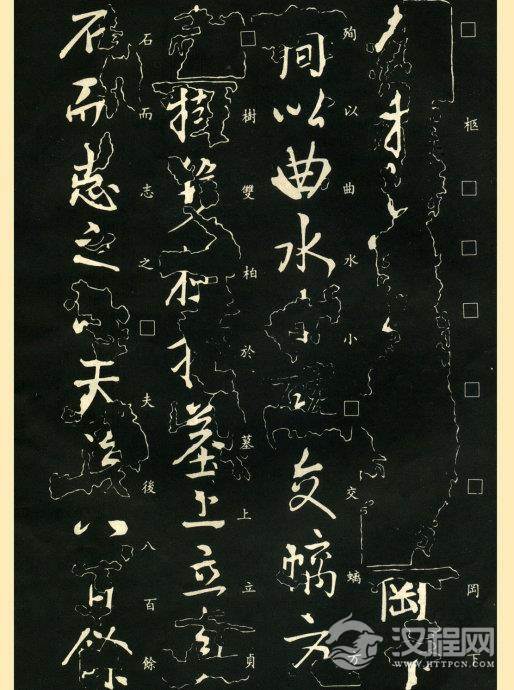 □柩□□□□□岡下
殉以曲水小□交螭方
□樹雙柏於墓上立貞
石而志之□夫後八百餘
汉程网
WWW.HTTPCN.COM